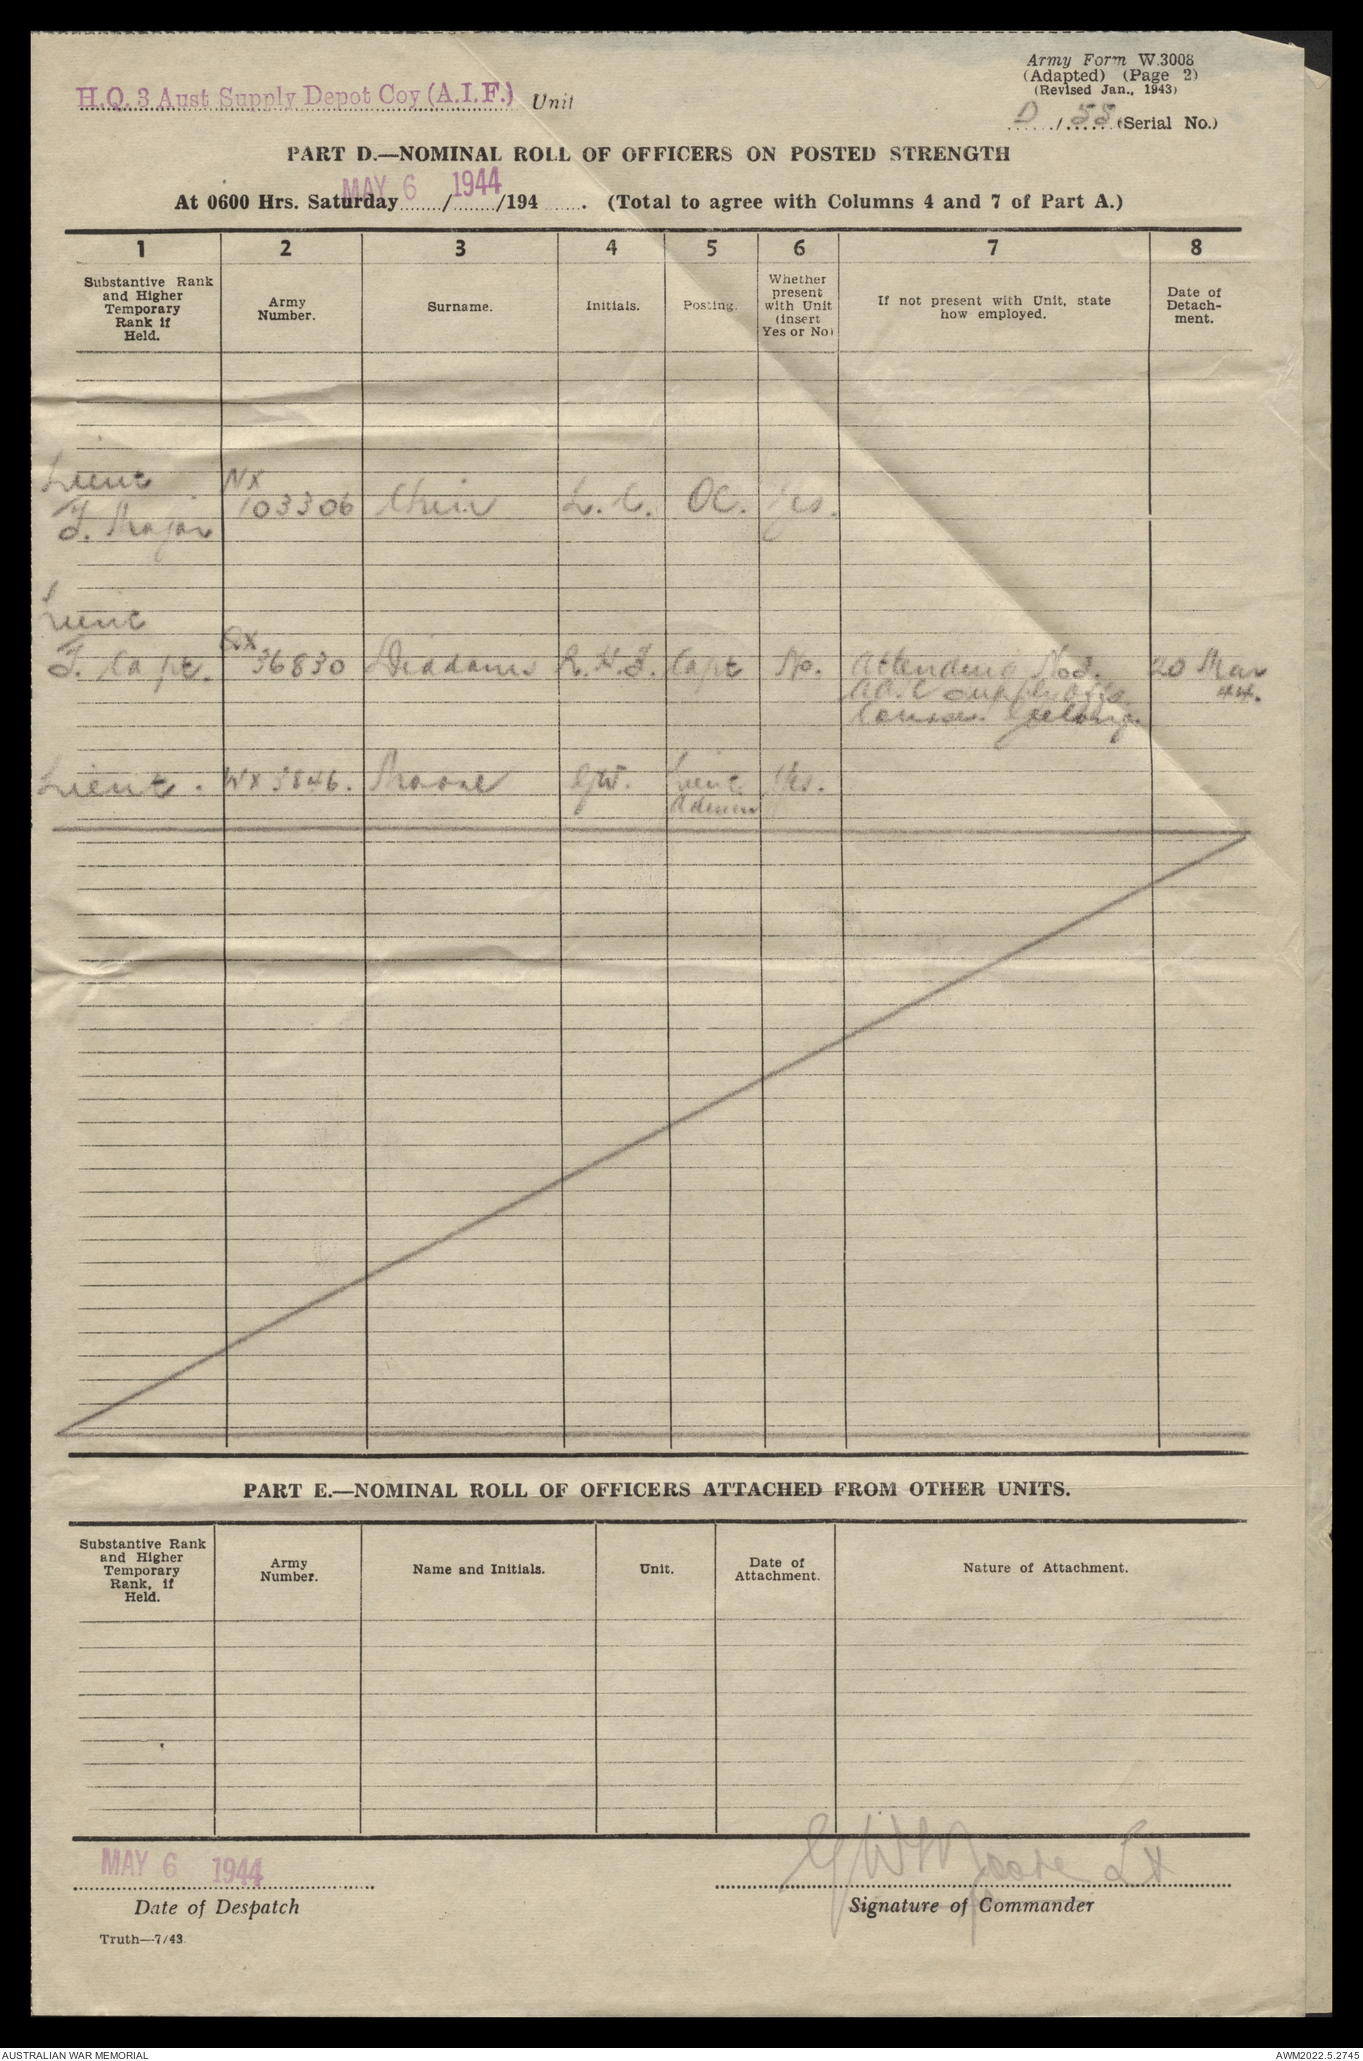 Army Form W.3008
(Adapted) (Page 2)
(Revised Jan., 1943)
H.Q. 3 Aust Supply Depot Coy (A.I.F.) Unit
D / 55 (Serial No.)
PART D.—NOMINAL ROLL OF OFFICERS ON POSTED STRENGTH
MAY 6 1944
At 0600 Hrs. Saturday......../......../194...... . (Total to agree with Columns 4 and 7 of Part A.)
1 2 3 4 5 6 7 8
Substantive Rank
and Higher
Temporary
Rank if
Held.
Army
Number.
Surname.
Initials.
Posting.
Whether
present
with Unit
(insert
Yes or No)
If not present with Unit, state
how employed.
Date of
Detach-
ment.
Lieut NX
T. Major 103306 L. C. OC. Yes.
Lieut QX
T. Capt. 36830 Diddams R.H.T. Capt No. Attending No3. 20 Mar
AASC Supply Offs 44.
Course. Geelong.
Lieut. WX 3846. Moore GW. Lieut Yes.
Admin
PART E.—NOMINAL ROLL OF OFFICERS ATTACHED FROM OTHER UNITS.
Substantive Rank
and Higher
Temporary
Rank, if
Held.
Army
Number.
Name and Initials.
Unit.
Date of
Attachment.
Nature of Attachment.
MAY 6 1944
GW Moore Lt
Date of Despatch
Signature of Commander
Truth—7/43.
AUSTRALIAN WAR MEMORIAL
AWM2022.5.2745